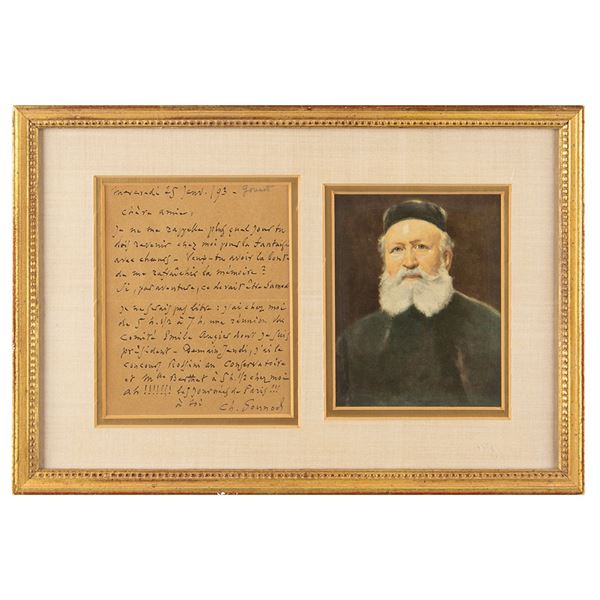 mercredi 25 Janv. /93 - Gounod
chère amie,
Je ne me rappelle plus quel jour tu
dois revenir chez moi pour la Fantaisie
avec chœurs - Veux-tu avoir la bonté
de me rafraîchir la mémoire ?
Si, par aventure, ce devait être Samedi
Je ne serais pas libre : j'ai chez moi
de 5 h. 1/2 à 7 h. une réunion du
Comité Emile Augier dont je suis
président - Demain Jeudi, j'ai le
concours Rossini au Conservatoire
et Mlle Berthet à 5 h. 1/2 chez moi
ah !!!!!!! les journées de Paris !!!
à toi Ch. Gounod